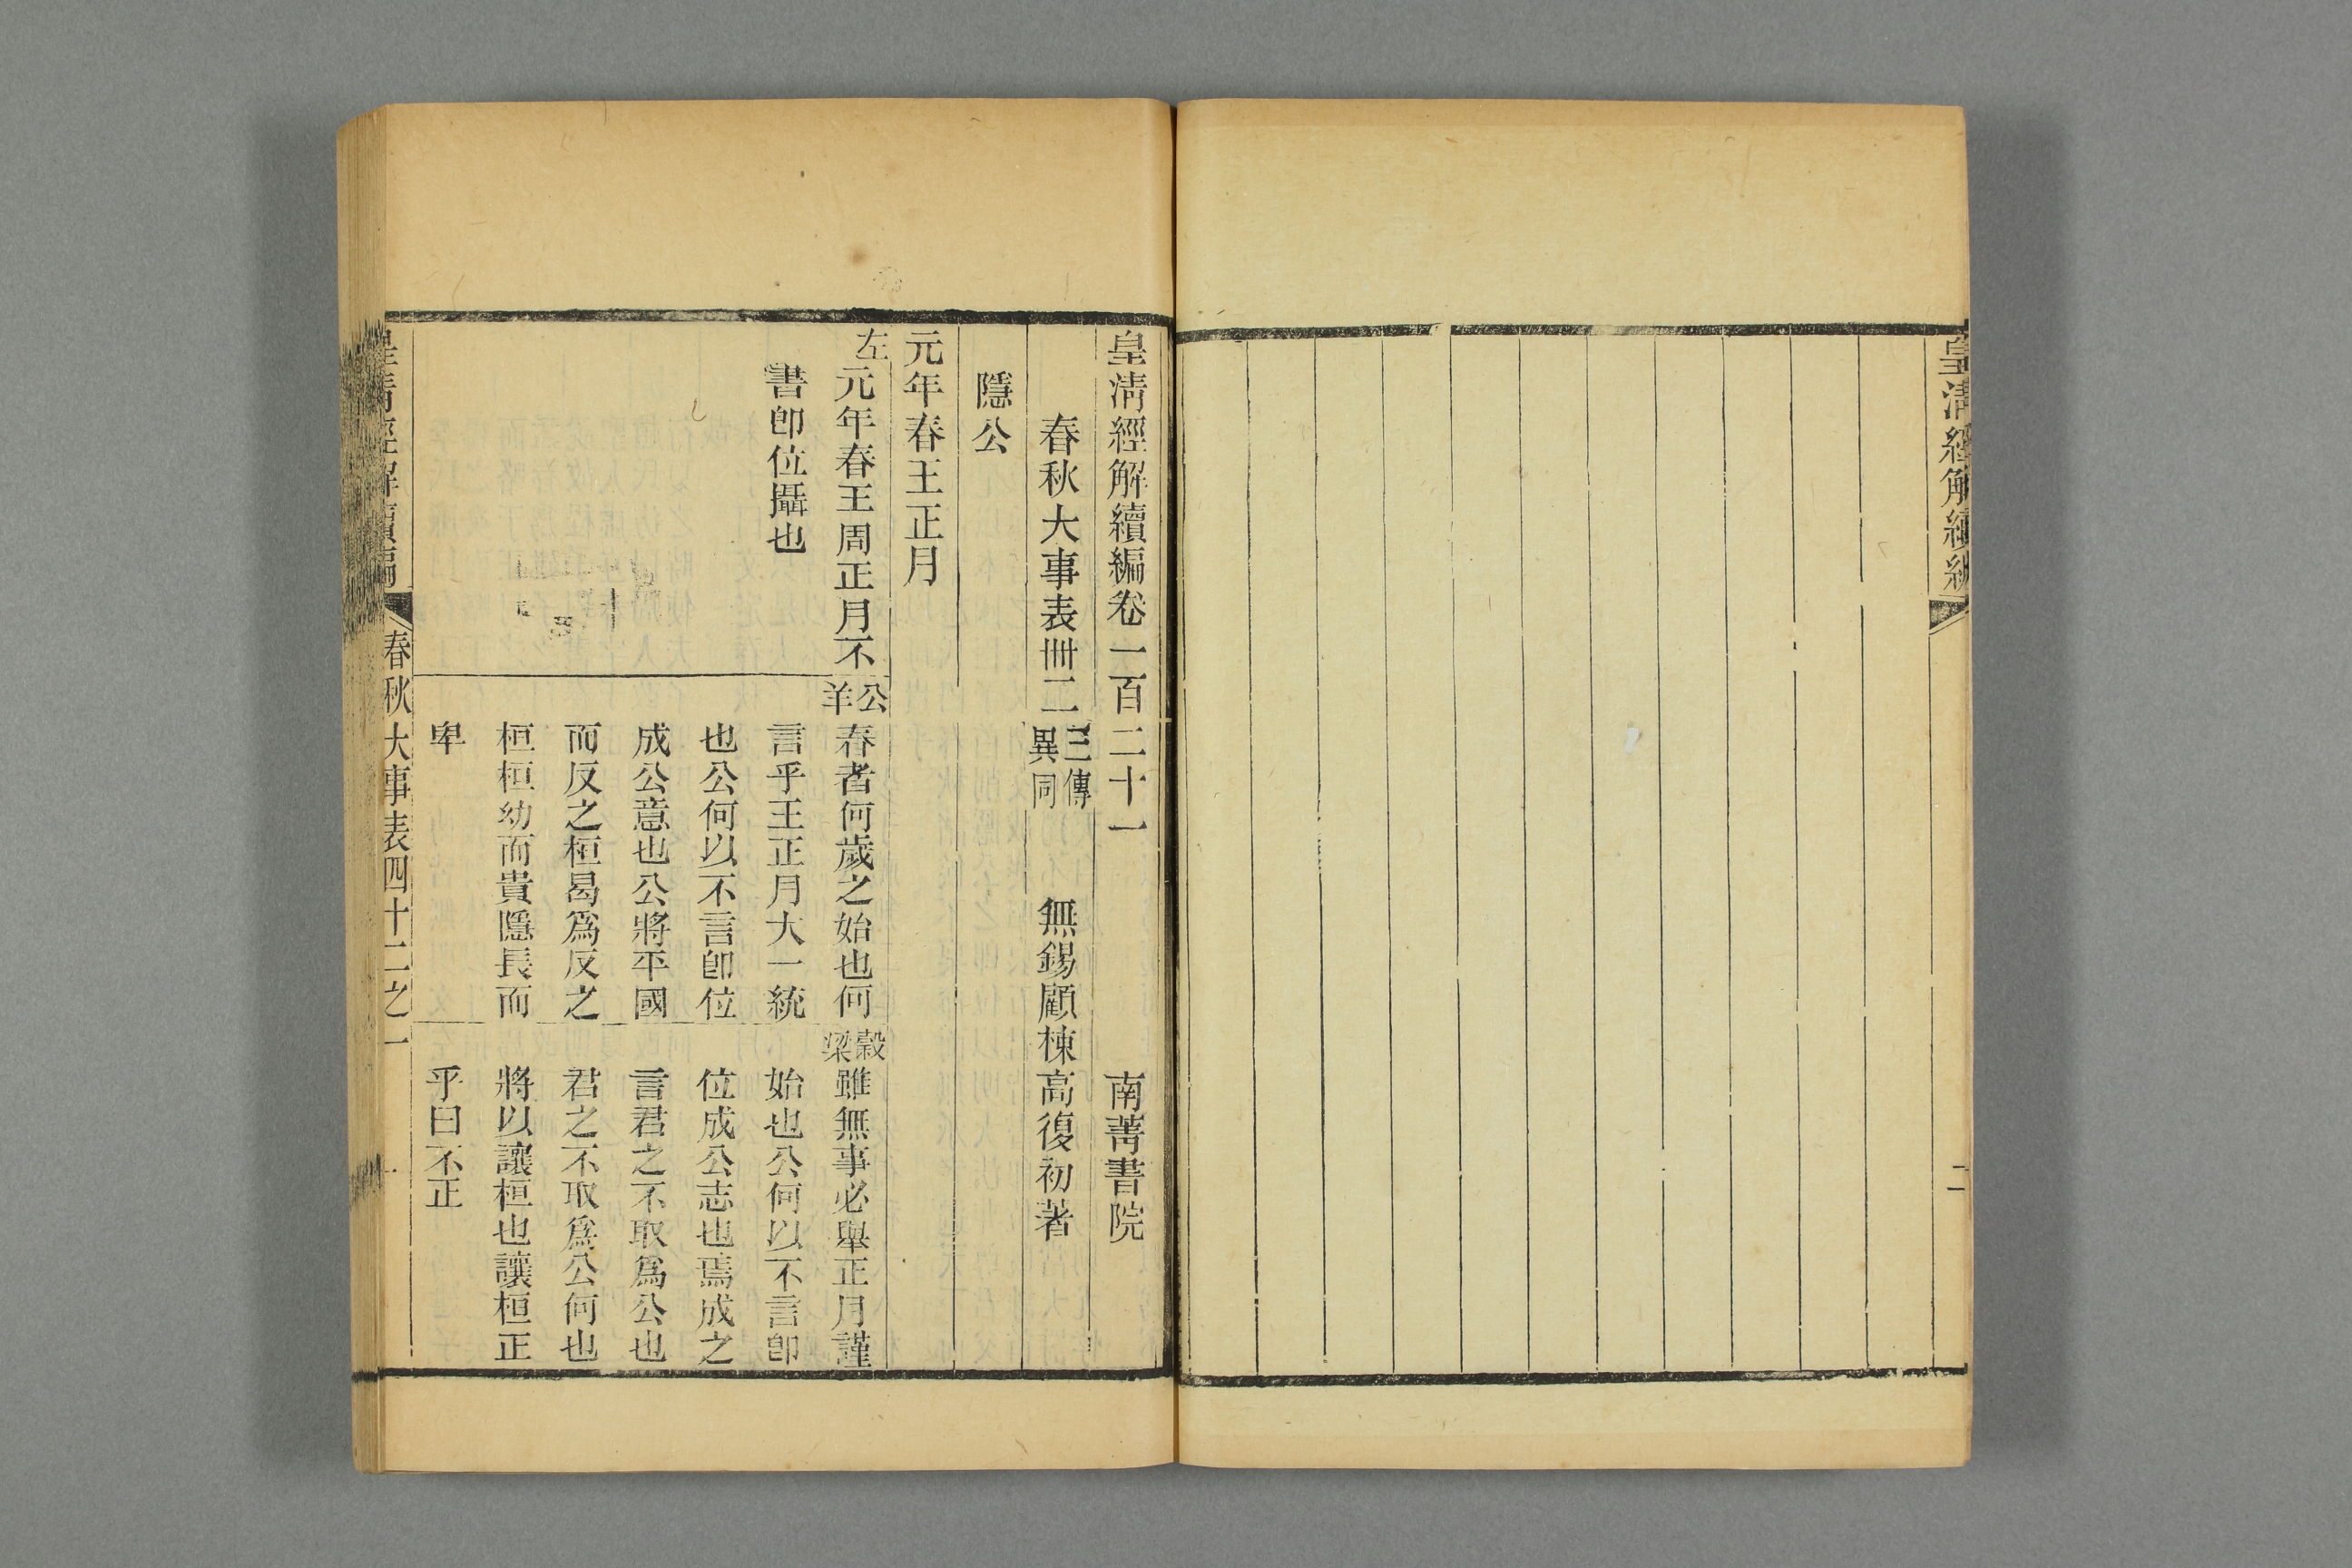 皇清經解續編
二
皇清經解續編卷一百二十一 南菁書院
春秋大事表卌二 三傳異同 無錫顧棟高復初著
隱公
元年春王正月
左 元年春王周正月不
書卽位攝也
公羊 春者何歲之始也何
言乎王正月大一統
也公何以不言卽位
成公意也公將平國
而反之桓曷爲反之
桓桓幼而貴隱長而
卑
穀梁 雖無事必舉正月謹
始也公何以不言卽
位成公志也焉成之
言君之不取爲公也
君之不取爲公何也
將以讓桓也讓桓正
乎曰不正
皇清經解續編 春秋大事表四十二之一 一